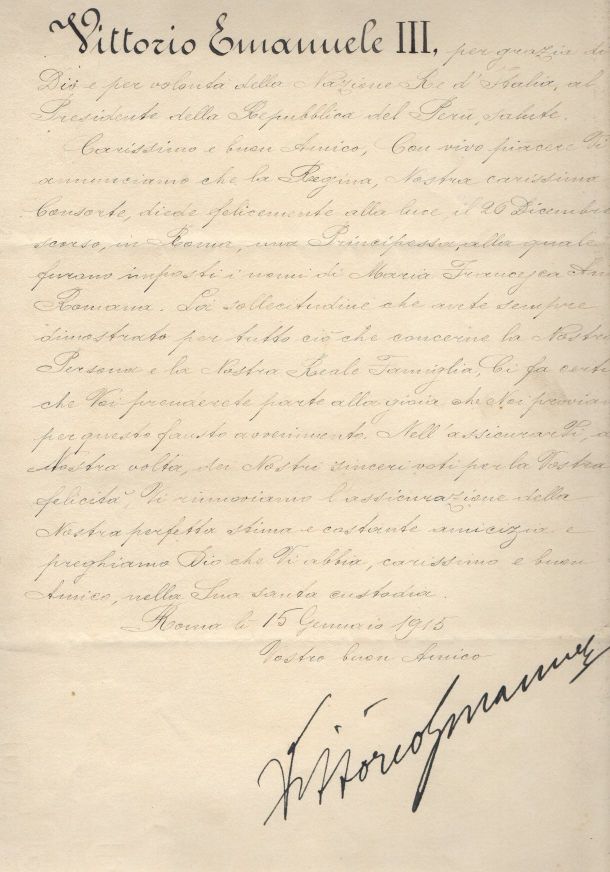 Vittorio Emanuele III, per grazia di
Dio e per volontà della Nazione Re d'Italia, al
Presidente della Repubblica del Perù, salute.
Carissimo e buon Amico, Con vivo piacere Vi
annunciamo che la Regina, Nostra carissima
Consorte, diede felicemente alla luce, il 26 Dicembre
scorso, in Roma, una Principessa, alla quale
furono imposti i nomi di Maria Francesca An
Romana. La sollecitudine che avete sempre
dimostrato per tutto ciò che concerne la Nostra
Persona e la Nostra Reale Famiglia, Ci fa certi
che Voi prenderete parte alla gioia che Noi provia
per questo fausto avvenimento. Nell'assicurarVi, a
Nostra volta, dei Nostri sinceri voti per la Vostra
felicità, Vi rinnoviamo l'assicurazione della
Nostra perfetta stima e costante amicizia e
preghiamo Dio che Vi abbia, carissimo e buon
Amico, nella Sua santa custodia.
Roma li 15 Gennaio 1915
Vostro buon Amico
Vittorio Emanuele